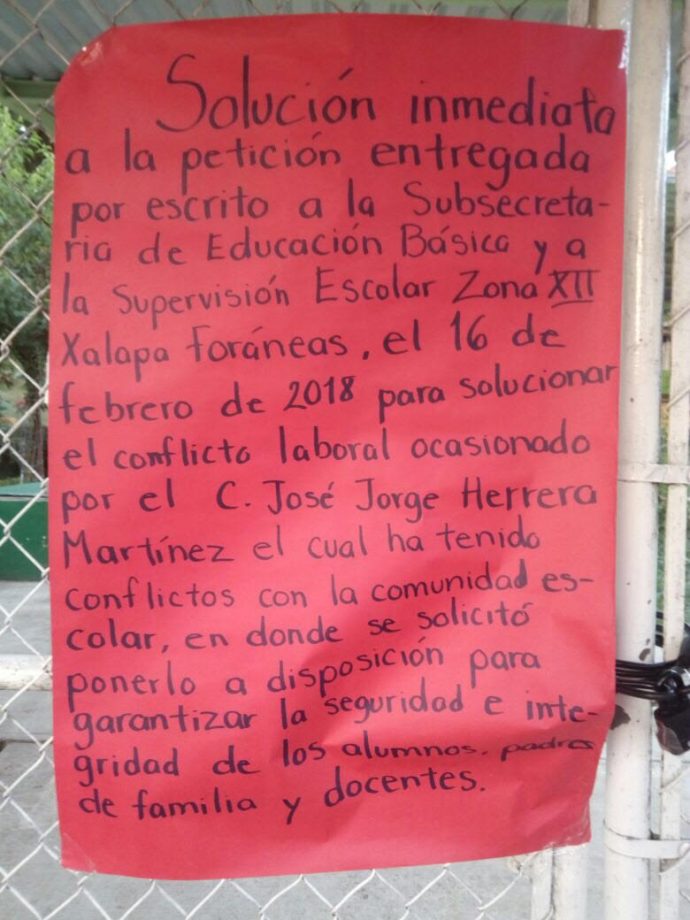 Solución inmediata
a la petición entregada
por escrito a la Subsecreta-
ria de Educación Básica y a
la Supervisión Escolar Zona XII
Xalapa Foráneas, el 16 de
febrero de 2018 para solucionar
el conflicto laboral ocasionado
por el C. José Jorge Herrera
Martínez el cual ha tenido
conflictos con la comunidad es-
colar, en donde se solicitó
ponerlo a disposición para
garantizar la seguridad e inte-
gridad de los alumnos, padres
de familia y docentes.